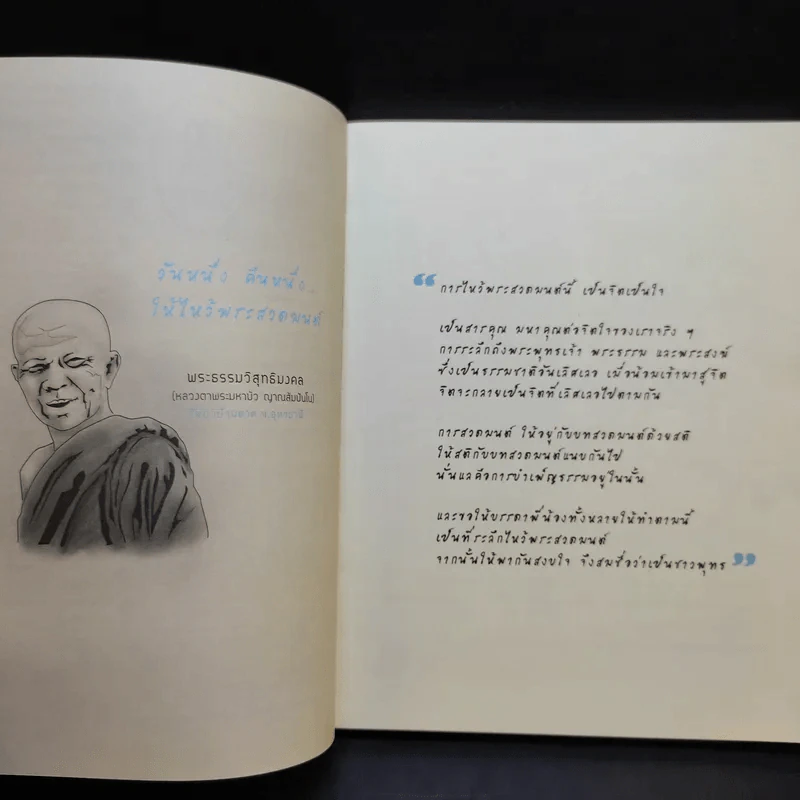 วันหนึ่ง คืนหนึ่ง...
ให้ไหว้พระสวดมนต์
พระธรรมวิสุทธิมงคล
(หลวงตาพระมหาบัว ญาณสัมปันโน)
วัดป่าบ้านตาด จ.อุดรธานี
“การไหว้พระสวดมนต์นี้ เป็นจิตเป็นใจ
เป็นสารคุณ มหาคุณต่อจิตใจของเราจริง ๆ
การระลึกถึงพระพุทธเจ้า พระธรรม และพระสงฆ์
ซึ่งเป็นธรรมชาติอันเลิศเลอ เมื่อน้อมเข้ามาสู่จิต
จิตจะกลายเป็นจิตที่เลิศเลอไปตามกัน
การสวดมนต์ ให้อยู่กับบทสวดมนต์ด้วยสติ
ให้สติกับบทสวดมนต์แนบกันไป
นั่นแลคือการบำเพ็ญธรรมอยู่ในนั้น
และขอให้บรรดาพี่น้องทั้งหลายให้ทำตามนี้
เป็นที่ระลึกไหว้พระสวดมนต์
จากนั้นให้พากันสงบใจ จึงสมชื่อว่าเป็นชาวพุทธ”